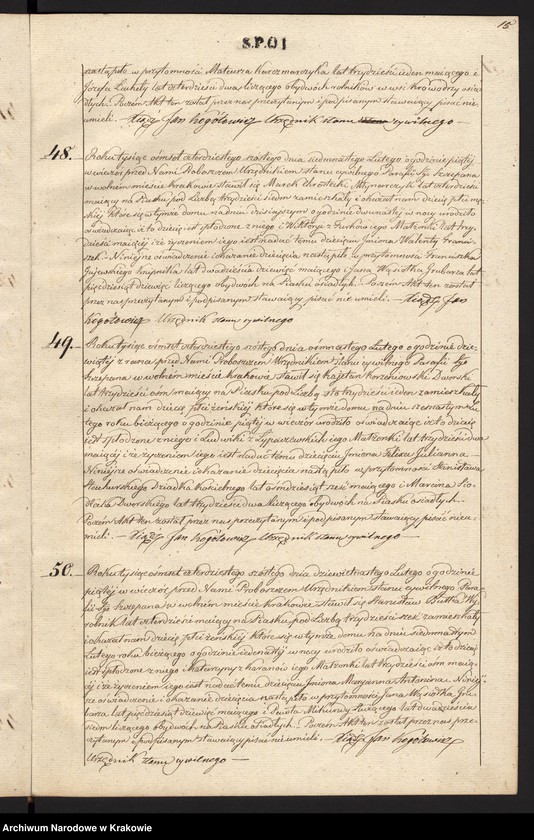 15
S.P.O1
nastąpiło w przytomności Mateusza Kaczmarczyka lat trzydzieści ieden maiącego i
Józefa lat czterdzieści dwa liczącego obydwoch rolników w wsi Krowodrzy osia
dłych. Poczem Akt ten został przez nas przeczytanym i podpisanym stawaiący pisać nie
umieli. — Xiądz Jan Kogólowicz Urzędnik stanu cywilnego —
48. Roku tysiąc ośmset czterdziestego szóstego dnia siedmnastego Lutego o godzinie piątej
w wieczór przed Nami Proboszczem Urzędnikiem stanu cywilnego Parafii Sgo Szczepana
w wolnem mieście Krakowie stawił się Marek Młynarczyk lat czterdzieści
maiący na Piasku pod Liczbą trzydzieści siedm zamieszkały i okazał nam dziecię płci mę
skiej które się w tymże domu na dniu dzisiejszym o godzinie dwunastej w nocy urodziło
oświadczaiąc iż to dziecię iest spłodzone z niego i Wiktoryi z iego Małżonki lat trzy
dzieści maiącej i że życzeniem iego iest nadać temu dziecięciu Imiona Walenty Franci
szek. Niniejsze oświadczenie i okazanie dziecięcia nastąpiło w przytomności Franciszka
lat dwadzieścia dziewięć maiącego i Jana Wąsotka Grubarza lat
pięćdziesiąt dziewięć liczącego obydwoch na Piasku osiadłych. Poczem Akt ten został
przez nas przeczytanym i podpisanym stawaiący pisać nie umieli. — Xiądz Jan
Kogólowicz Urzędnik stanu cywilnego
49. Roku tysiąc ośmset czterdziestego szóstego dnia ośmnastego Lutego o godzinie dzie
wiątej z rana przed Nami Proboszczem Urzędnikiem stanu cywilnego Parafii Sgo
Szczepana w wolnem mieście Krakowie stawił się Kajetan Korzeniowski Dworski
lat trzydzieści ośm maiący na Piasku pod Liczbą sto trzydzieści ieden zamieszkały
i okazał nam dziecię płci żeńskiej które się w tymże domu na dniu szesnastym Lu
tego roku bieżącego o godzinie piątej w wieczór urodziło oświadczaiąc iż to dziecię
iest spłodzone z niego i Ludwiki z iego Małżonki lat trzydzieści dwa
maiącej i że życzeniem iego iest nadać temu dziecięciu Imiona Felixa Julianna
Niniejsze oświadczenie i okazanie dziecięcia nastąpiło w przytomności Stanisława
Dziadka Kościelnego lat ośmdziesiąt sześć maiącego i Marcina Sio
Dworskiego lat trzydzieści dwa liczącego obydwoch na Piasku osiadłych.
Poczem Akt ten został przez nas przeczytanym i podpisanym stawaiący pisać nieu
mieli. — Xiądz Jan Kogólowicz Urzędnik stanu cywilnego —
50. Roku tysiąc ośmset czterdziestego szóstego dnia dziewiętnastego Lutego o godzinie
piątej w wieczór przed Nami Proboszczem Urzędnikiem stanu cywilnego Para
fii Sgo Szczepana w wolnem mieście Krakowie stawił się Stanisław Butka Wy
robnik lat czterdzieści maiący na Piasku pod Liczbą trzydzieści sześć zamieszkały
i okazał nam dziecię płci żeńskiej które się w tymże domu na dniu siedmnastym
Lutego roku bieżącego o godzinie iedenastej w nocy urodziło oświadczaiąc iż to dziecię
iest spłodzone z niego i Katarzyny z iego Małżonki lat trzydzieści ośm maią
cej i że życzeniem iego iest nadać temu dziecięciu Imiona Maryanna Antonina. Niniej
sze oświadczenie i okazanie dziecięcia nastąpiło w przytomności Jana Wąsotka Gru
barza lat pięćdziesiąt dziewięć maiącego i Pawła lat dwadzieścia
siedm liczącego obydwoch na Piasku osiadłych. Poczem Akt ten został przez nas prze
czytanym i podpisanym stawaiący pisać nie umieli. — Xiądz Jan Kogólowicz
Urzędnik stanu cywilnego —
Archiwum Narodowe w Krakowie